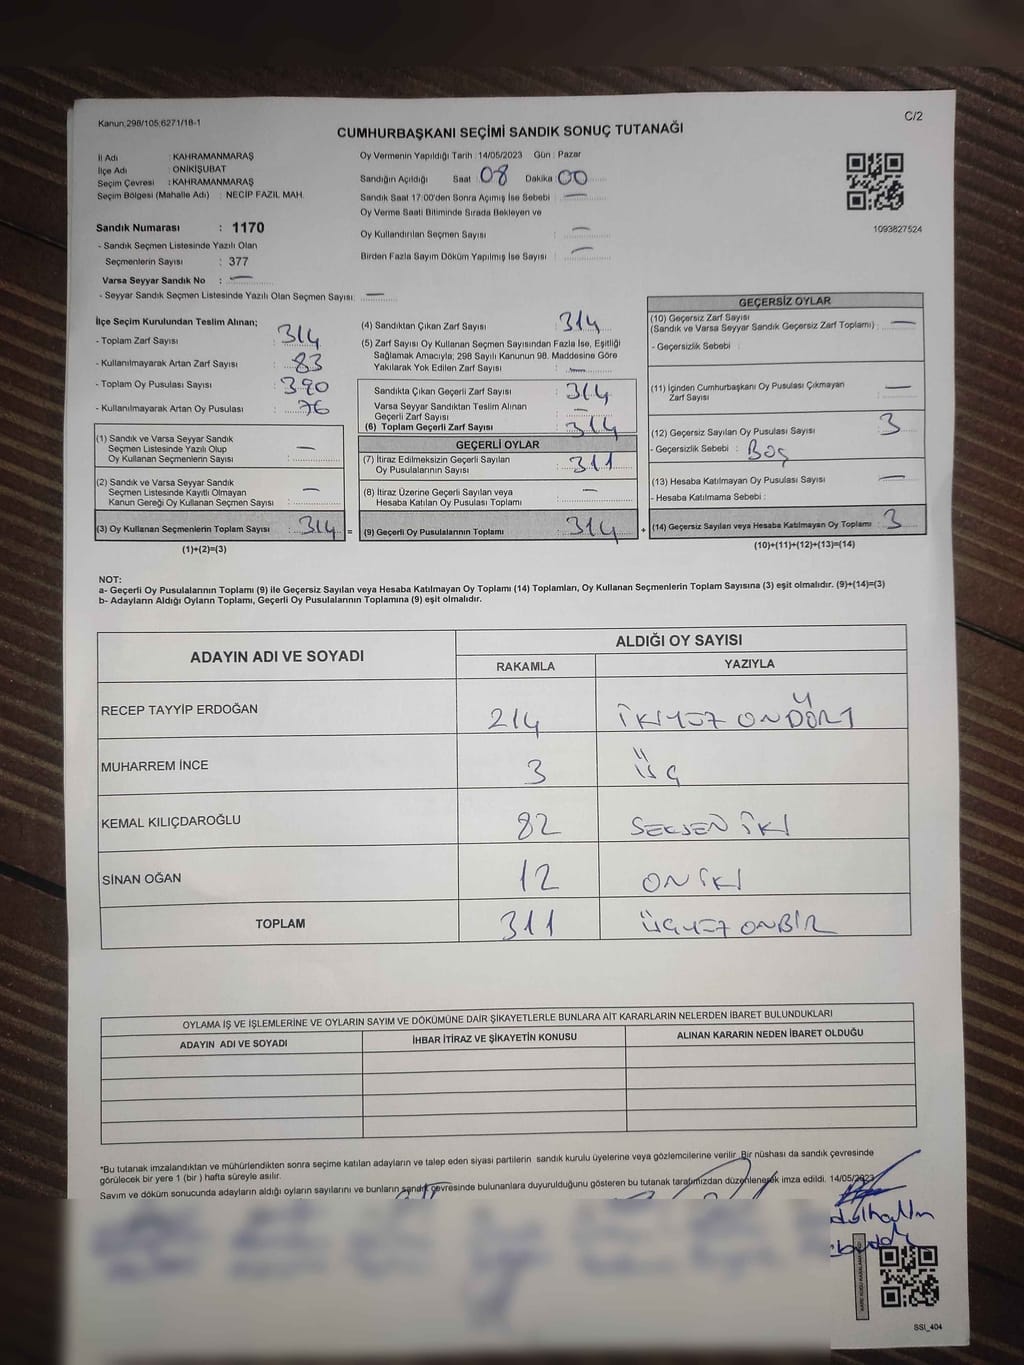 Kanun:298/105,6271/18-1
C/2
CUMHURBAŞKANI SEÇİMİ SANDIK SONUÇ TUTANAĞI
İl Adı : KAHRAMANMARAŞ
İlçe Adı : ONİKİŞUBAT
Seçim Çevresi : KAHRAMANMARAŞ
Seçim Bölgesi (Mahalle Adı) : NECİP FAZIL MAH.
Oy Vermenin Yapıldığı Tarih : 14/05/2023 Gün : Pazar
Sandığın Açıldığı Saat : 08 Dakika : 00
Sandık Saat 17:00'den Sonra Açımış İse Sebebi : —
Oy Verme Saati Bitiminde Sırada Bekleyen ve
Oy Kullandırılan Seçmen Sayısı : —
Birden Fazla Sayım Döküm Yapılmış İse Sayısı : —
1093827524
Sandık Numarası : 1170
- Sandık Seçmen Listesinde Yazılı Olan
Seçmenlerin Sayısı : 377
Varsa Seyyar Sandık No : —
- Seyyar Sandık Seçmen Listesinde Yazılı Olan Seçmen Sayısı : —
İlçe Seçim Kurulundan Teslim Alınan;
- Toplam Zarf Sayısı : 314
- Kullanılmayarak Artan Zarf Sayısı : 83
- Toplam Oy Pusulası Sayısı : 390
- Kullanılmayarak Artan Oy Pusulası : 76
(1) Sandık ve Varsa Seyyar Sandık
Seçmen Listesinde Yazılı Olup
Oy Kullanan Seçmenlerin Sayısı : —
(2) Sandık ve Varsa Seyyar Sandık
Seçmen Listesinde Kayıtlı Olmayan
Kanun Gereği Oy Kullanan Seçmen Sayısı : —
(3) Oy Kullanan Seçmenlerin Toplam Sayısı : 314 =
(1)+(2)=(3)
(4) Sandıktan Çıkan Zarf Sayısı : 314
(5) Zarf Sayısı Oy Kullanan Seçmen Sayısından Fazla İse, Eşitliği
Sağlamak Amacıyla; 298 Sayılı Kanunun 98. Maddesine Göre
Yakılarak Yok Edilen Zarf Sayısı : —
Sandıkta Çıkan Geçerli Zarf Sayısı : 314
Varsa Seyyar Sandıktan Teslim Alınan
Geçerli Zarf Sayısı : —
(6) Toplam Geçerli Zarf Sayısı : 314
GEÇERLİ OYLAR
(7) İtiraz Edilmeksizin Geçerli Sayılan
Oy Pusulalarının Sayısı : 311
(8) İtiraz Üzerine Geçerli Sayılan veya
Hesaba Katılan Oy Pusulası Toplamı : —
(9) Geçerli Oy Pusulalarının Toplamı : 314 +
GEÇERSİZ OYLAR
(10) Geçersiz Zarf Sayısı
(Sandık ve Varsa Seyyar Sandık Geçersiz Zarf Toplamı) : —
- Geçersizlik Sebebi :
(11) İçinden Cumhurbaşkanı Oy Pusulası Çıkmayan
Zarf Sayısı : —
(12) Geçersiz Sayılan Oy Pusulası Sayısı : 3
- Geçersizlik Sebebi : Boş
(13) Hesaba Katılmayan Oy Pusulası Sayısı : —
- Hesaba Katılmama Sebebi :
(14) Geçersiz Sayılan veya Hesaba Katılmayan Oy Toplamı : 3
(10)+(11)+(12)+(13)=(14)
NOT:
a- Geçerli Oy Pusulalarının Toplamı (9) ile Geçersiz Sayılan veya Hesaba Katılmayan Oy Toplamı (14) Toplamları, Oy Kullanan Seçmenlerin Toplam Sayısına (3) eşit olmalıdır. (9)+(14)=(3)
b- Adayların Aldığı Oyların Toplamı, Geçerli Oy Pusulalarının Toplamına (9) eşit olmalıdır.
ADAYIN ADI VE SOYADI
ALDIĞI OY SAYISI
RAKAMLA YAZIYLA
RECEP TAYYİP ERDOĞAN 214 İKİYÜZ ONDÖRT
MUHARREM İNCE 3 ÜÇ
KEMAL KILIÇDAROĞLU 82 SEKSEN İKİ
SİNAN OĞAN 12 ON İKİ
TOPLAM 311 ÜÇYÜZ ONBİR
OYLAMA İŞ VE İŞLEMLERİNE VE OYLARIN SAYIM VE DÖKÜMÜNE DAİR ŞİKAYETLERLE BUNLARA AİT KARARLARIN NELERDEN İBARET BULUNDUKLARI
ADAYIN ADI VE SOYADI İHBAR İTİRAZ VE ŞİKAYETİN KONUSU ALINAN KARARIN NEDEN İBARET OLDUĞU
*Bu tutanak imzalandıktan ve mühürlendikten sonra seçime katılan adayların ve talep eden siyasi partilerin sandık kurulu üyelerine veya gözlemcilerine verilir. Bir nüshası da sandık çevresinde
görülecek bir yere 1 (bir ) hafta süreyle asılır.
Sayım ve döküm sonucunda adayların aldığı oyların sayılarını ve bunların sandık çevresinde bulunanlara duyurulduğunu gösteren bu tutanak tarafımızdan düzenlenerek imza edildi. 14/05/2023
SSI_404